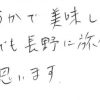 らかで美味し
でも長野に旅
思います。